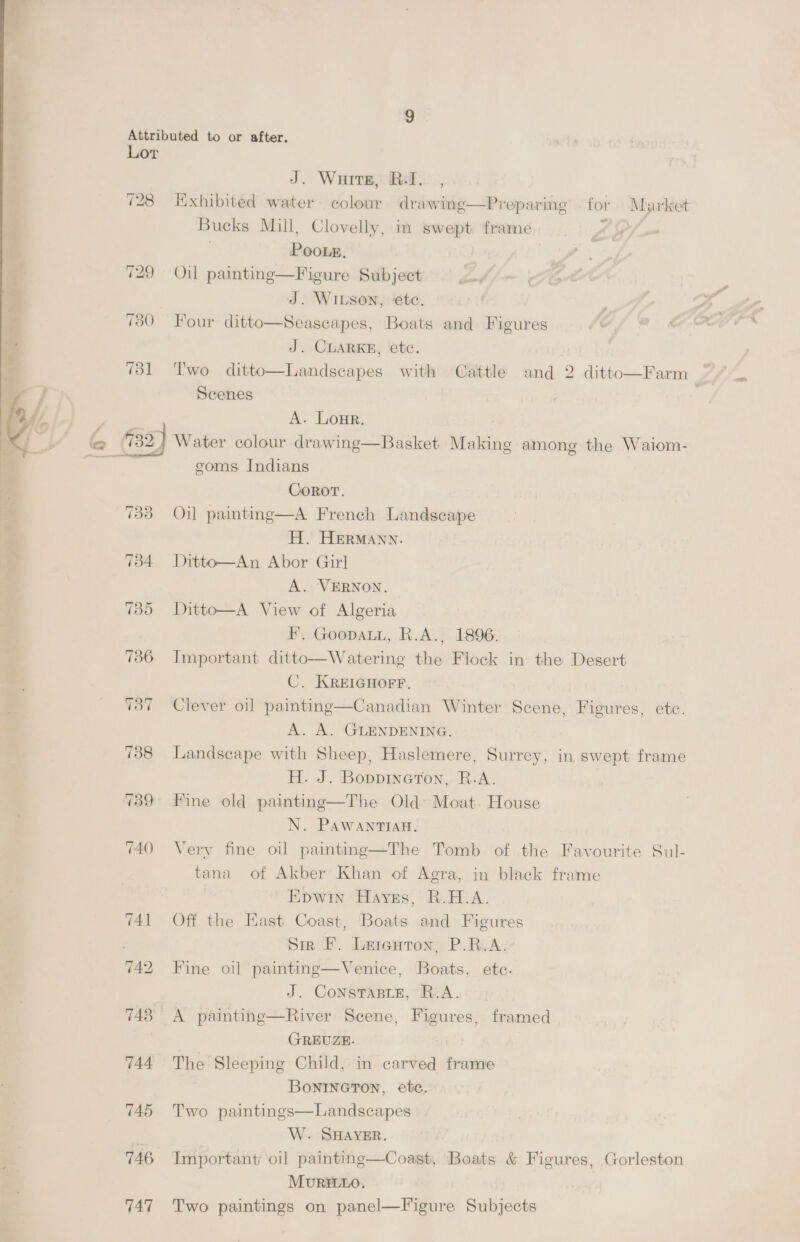 9
Attributed to or after.
Lot
J. White, R.I. ,
728 Exhibited water colour drawing—Preparing for Market
Bucks Mill, Clovelly, in swept frame
Poole.
729 Oil painting—Figure Subject
J. Wilson, etc.
730 Four ditto—Seascapes, Boats and Figures
J. Clarke, etc.
731 Two ditto—Landscapes with Cattle and 2 ditto—Farm
Scenes
A. Lohr.
732 Water colour drawing—Basket Making among the Waiom-
goms Indians
Corot.
733 Oil painting—A French Landscape
H. Hermann.
734 Ditto—An Abor Girl
A. Vernon.
735 Ditto—A View of Algeria
F. Goodall, R.A., 1896.
736 Important ditto—Watering the Flock in the Desert
C. Kreighoff.
737 Clever oil painting—Canadian Winter Scene, Figures, etc.
A. A. Glendening.
738 Landscape with Sheep, Haslemere, Surrey, in swept frame
H. J. Boddington, R.A.
739 Fine old painting—The Old Moat House
N. Pawantiah.
740 Very fine oil painting—The Tomb of the Favourite Sul-
tana of Akber Khan of Agra, in black frame
Edwin Hayes, R.H.A.
741 Off the East Coast, Boats and Figures
Sir F. Leighton, P.R.A.
742 Fine oil painting—Venice, Boats, etc.
J. Constable, R.A.
743 A painting—River Scene, Figures, framed
Greuze.
744 The Sleeping Child, in carved frame
Bonington, etc.
745 Two paintings—Landscapes
W. Shayer.
746 Important oil painting—Coast, Boats & Figures, Gorleston
Murillo.
747 Two paintings on panel—Figure Subjects